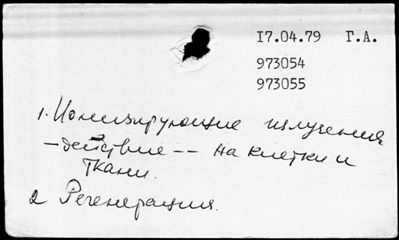 17.04.79 Г.А.
973054
973055
1. Ионизирующие излучения
—действие -- на клетки и
ткани.
2 Регенерация.